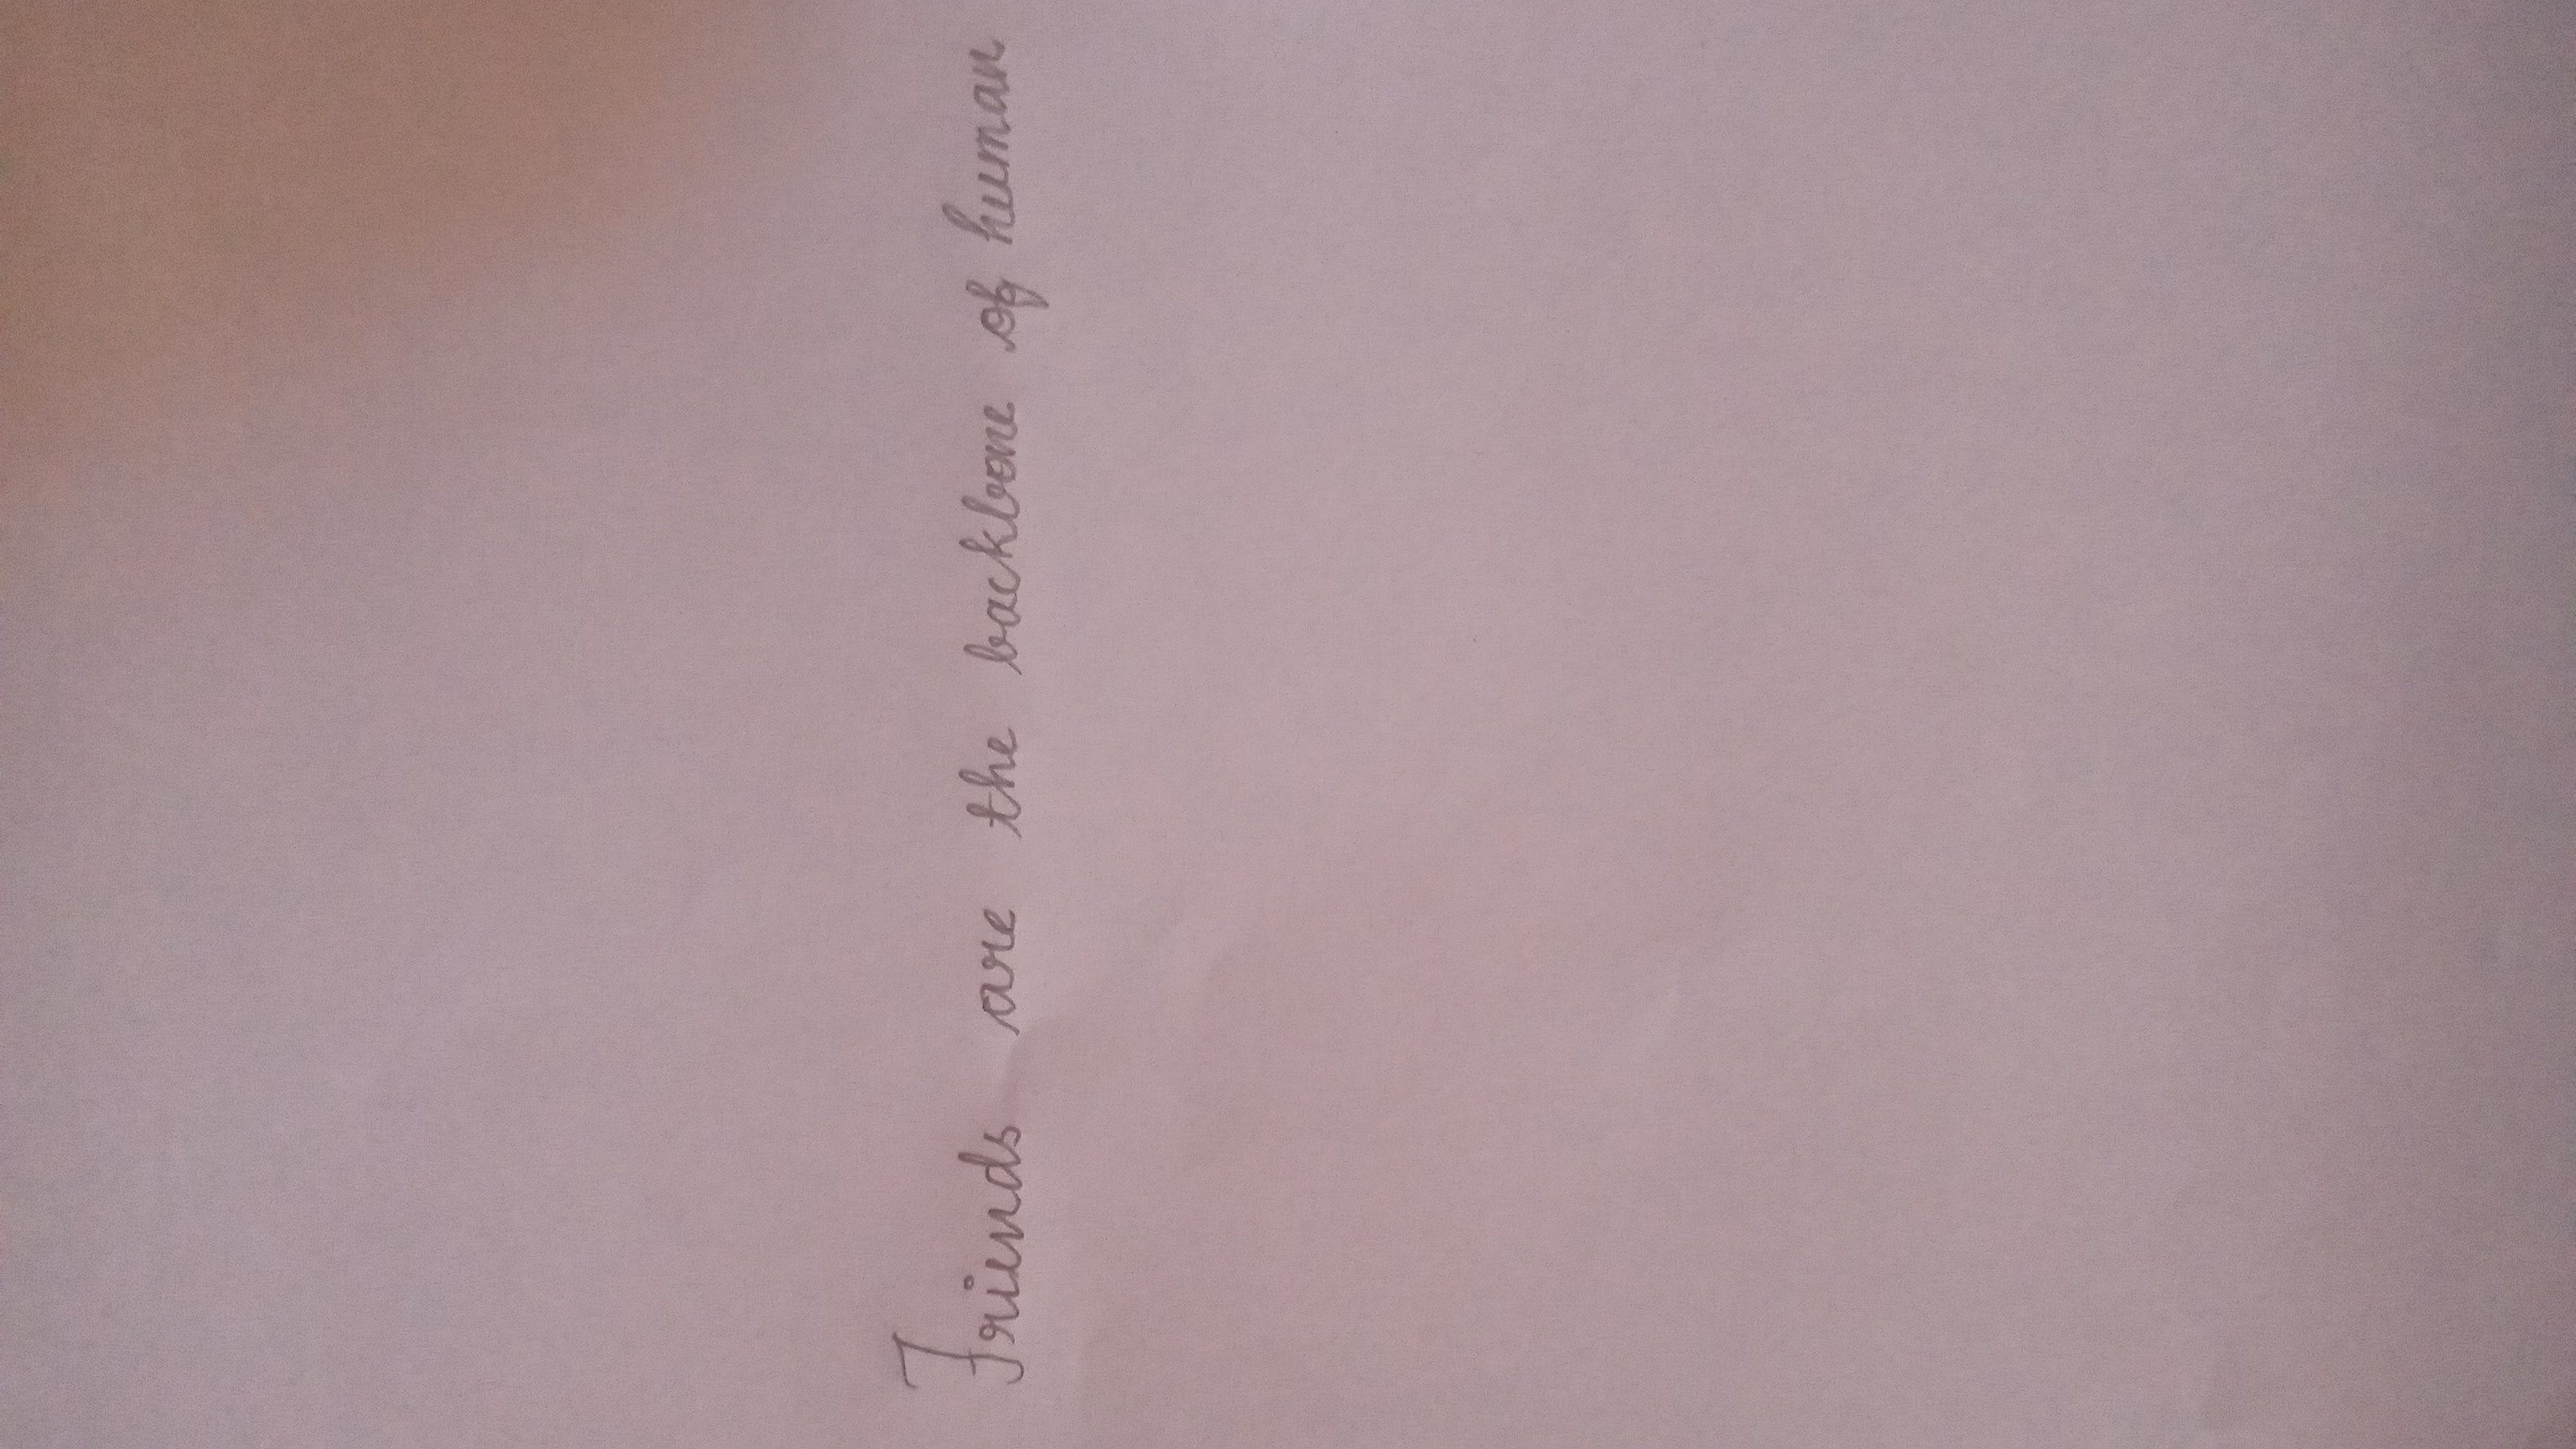 Friends are the backbone of human